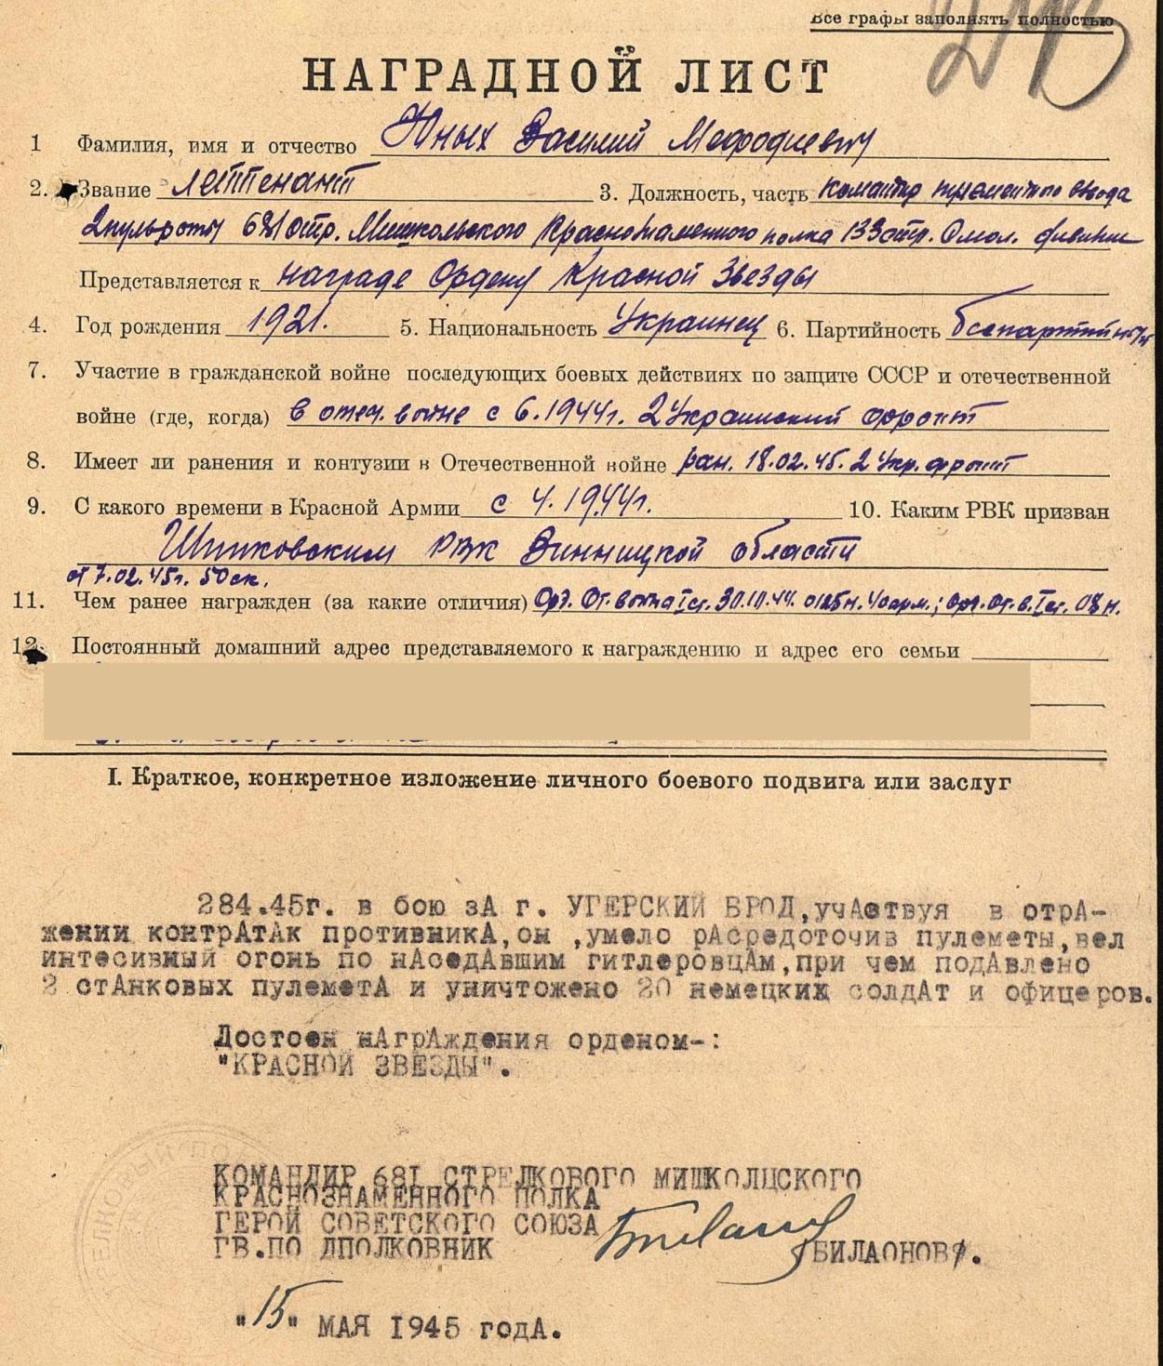 Все графы заполнять полностью
НАГРАДНОЙ ЛИСТ
1 Фамилия, имя и отчество Юных Василий Мефодиевич
2. Звание лейтенант 3. Должность, часть командир пулеметного взвода
2 пульроты 681 стр. Мишкольского Краснознаменного полка 133 стр. Смол. дивизии
Представляется к награде Ордену Красной Звезды
4. Год рождения 1921. 5. Национальность Украинец 6. Партийность
7. Участие в гражданской войне последующих боевых действиях по защите СССР и отечественной
войне (где, когда) в отеч. войне с 6.1944г. 2 Украинский фронт
8. Имеет ли ранения и контузии в Отечественной войне ран. 18.02.45. 2 Укр. фронт
9. С какого времени в Красной Армии с 4.1944г. 10. Каким РВК призван
Шпиковским РВК Винницкой области
от 7.02.45г. 50 ск.
11. Чем ранее награжден (за какие отличия) Орд. От. война I ст. 30.10.44. 40 арм.; Орд. От. в. I ст. 08 н.
12. Постоянный домашний адрес представляемого к награждению и адрес его семьи
I. Краткое, конкретное изложение личного боевого подвига или заслуг
284.45г. в бою зА г. УГЕРСКИЙ БРОД, учАствуя в отрА-
жении контрАтАк противникА, он ,умело рАсредоточив пулеметы, вел
интесивный огонь по нАседАвшим гитлеровцАм, при чем подАвлено
2 стАнковых пулеметА и уничтожено 20 немецких солдАт и офицеров.
Достоен нАгрАждения орденом-:
"КРАСНОЙ ЗВЕЗДЫ".
КОМАНДИР 681 СТРЕЛКОВОГО МИШКОЛЦСКОГО
КРАСНОЗНАМЕННОГО ПОЛКА
ГЕРОЙ СОВЕТСКОГО СОЮЗА
ГВ.ПО ДПОЛКОВНИК /БИЛАОНОВ/.
"15" МАЯ 1945 годА.